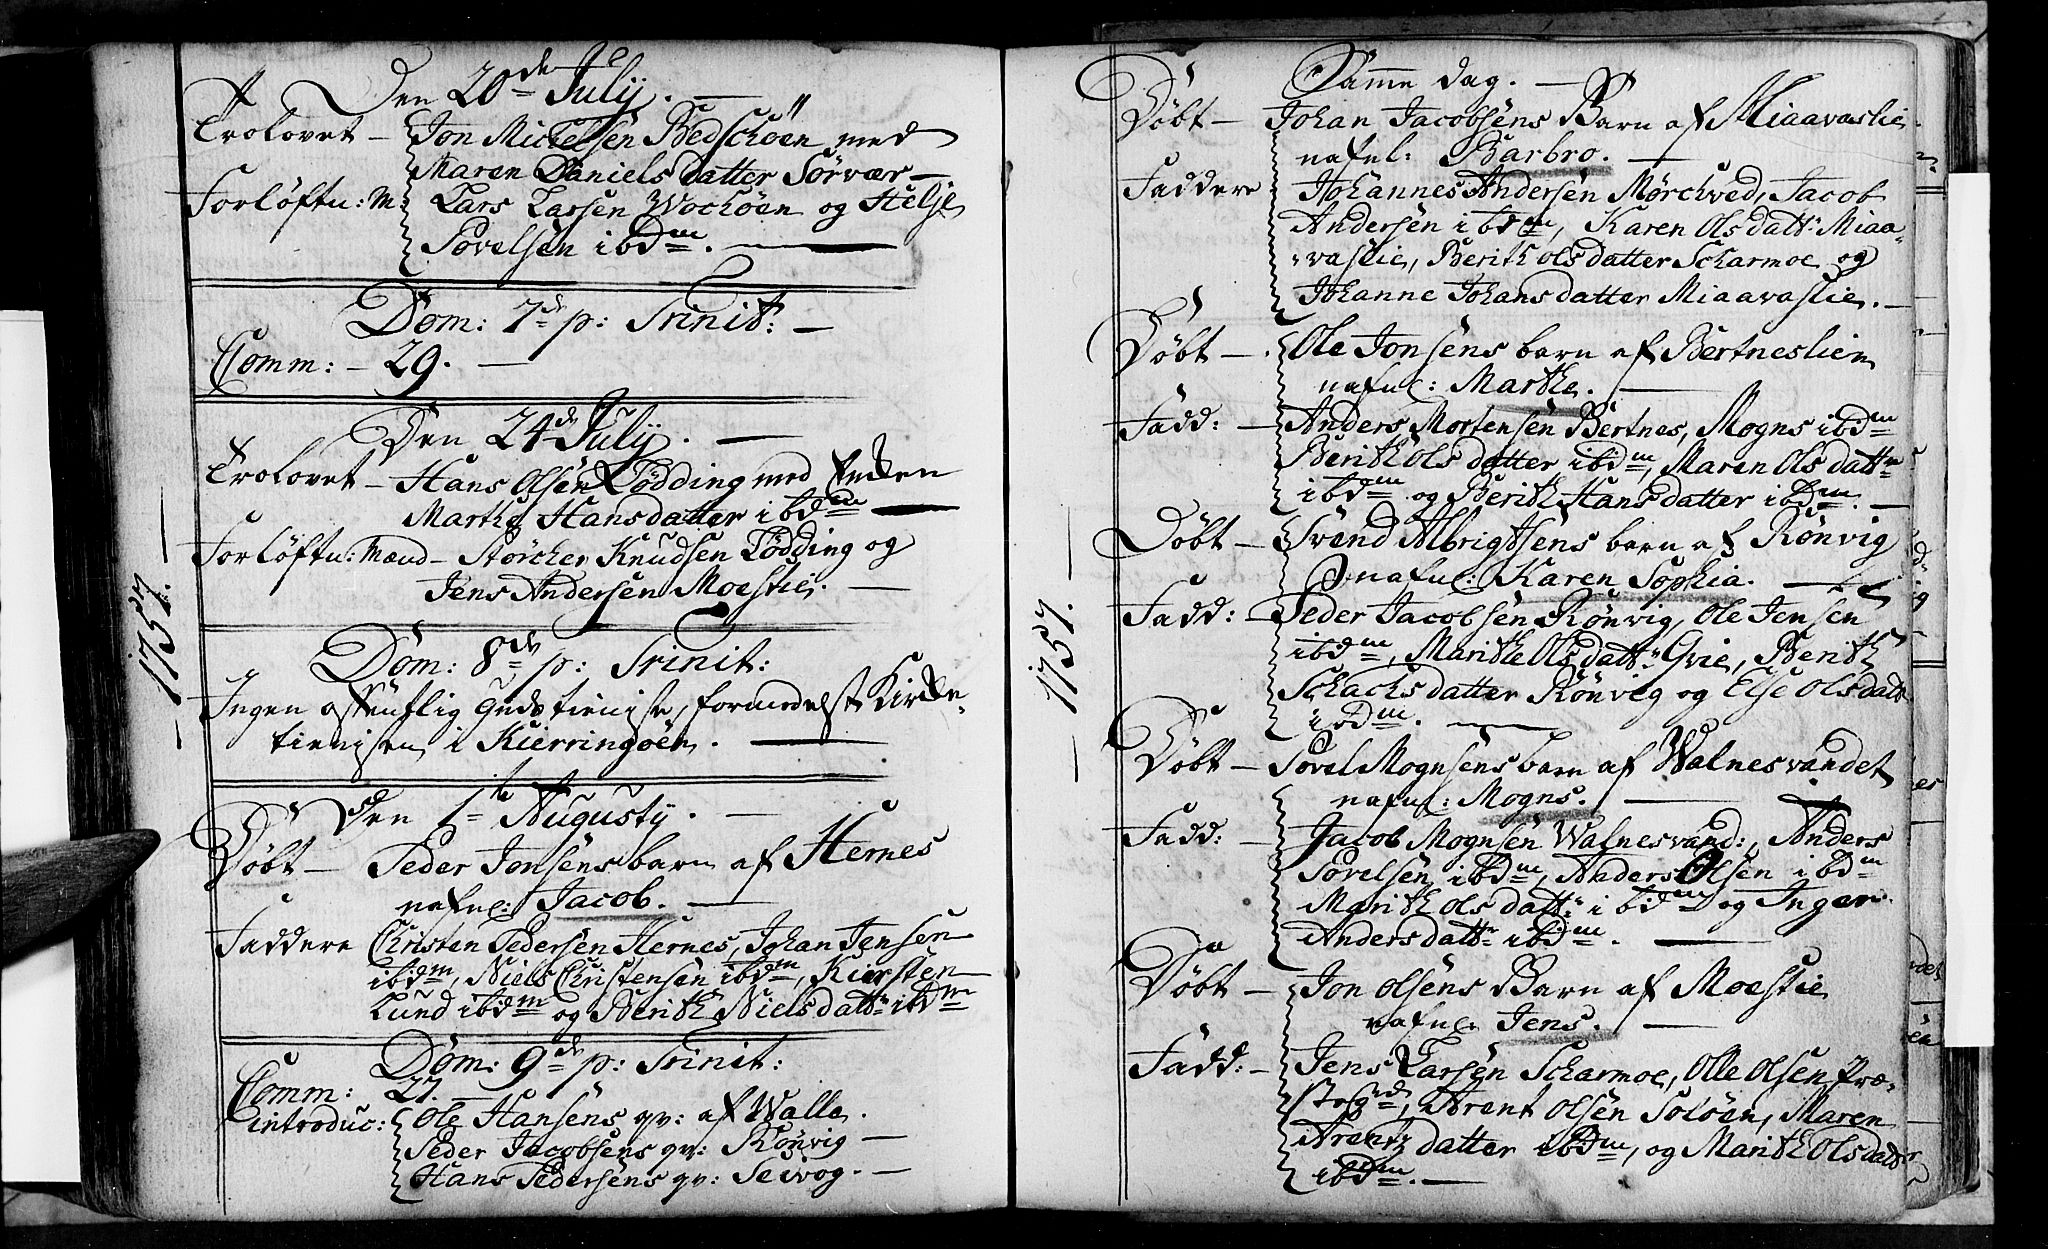 1757.
Den 20de July.
Trolovet - Jon Mickelsen Bedschöen med
Maren Daniels datter Sörvær -
Forlöftn: M: Lars Larsen Wochöen og Helje
Povelsen ibdm.
Dom: 7de p: Trinit:
Comm: - 29.
Den 24de July.
Trolovet - Hans Olsen Lödding med Encken
Marthe Hansdatter ibdm
Forlöftn: Mænd - Störcher Knudsen Lödding og
Jens Andersen Moeslie.
Dom: 8de p: Trinit:
Ingen offentlig Gudstieniste, formedelst Kircke-
tienisten i Kierringöen.
Den 1te Augusty.
Döbt - Peder Jonsens barn af Hernes
nafnl: Jacob.
Faddere Christen Pedersen Hernes, Johan Jensen
ibidm, Niels Christensen ibdm, Kiersten
Lund ibdm og Berith Nielsdattr ibdm
Dom: 9de p: Trinit:
Comm: 27.
introduc: Ole Hansens qv: af Walle.
Peder Jacobsens qv: Rönvig
Hans Pedersens qv: Seivog.
1757.
Samme dag.
Döbt - Johan Jacobsens Barn af Miaavaslie.
nafnl: Barbro.
Faddere Johannes Andersen Mörchved, Jacob
Andersen ibdm, Karen Olsdatt: Miaa-
vaslie, Berith Olsdatter Scharmoe og
Johanne Johansdatter Miaavaslie.
Döbt - Ole Jonsens barn af Bertneslien
nafnl: Marthe.
Fadd: - Anders Mortensen Bertnes, Mogns ibdm
Berith Olsdatter ibdm, Maren Olsdattr
ibdm og Berith Hansdatter ibdm.
Döbt - Svend Albrigtsens barn af Rönvig
nafnl: Karen Sophia.
Fadd: - Peder Jacobsen Rönvig, Ole Jensen
ibdm, Marithe Olsdatt: Gvie, Berith
Schachsdatter Rönvig og Else Olsdatt
ibdm.
Döbt - Povel Mognsens barn af Walnesvandet
nafnl: Mogns.
Fadd: - Jacob Mognsen Walnesvand:, Anders
Povelsen ibdm, Anders Olsen ibdm
Marith Olsdatt: ibdm og Inger
Andersdattr ibdm.
Döbt - Jon Olsens Barn af Moeslie
nafnl: Jens.
Fadd: - Jens Larsen Scharmoe, Olle Olsen Præ-
stegrd, Arent Olsen Solöen, Maren
Arentz datter ibdm, og Marith Olsdattr
ibdm.